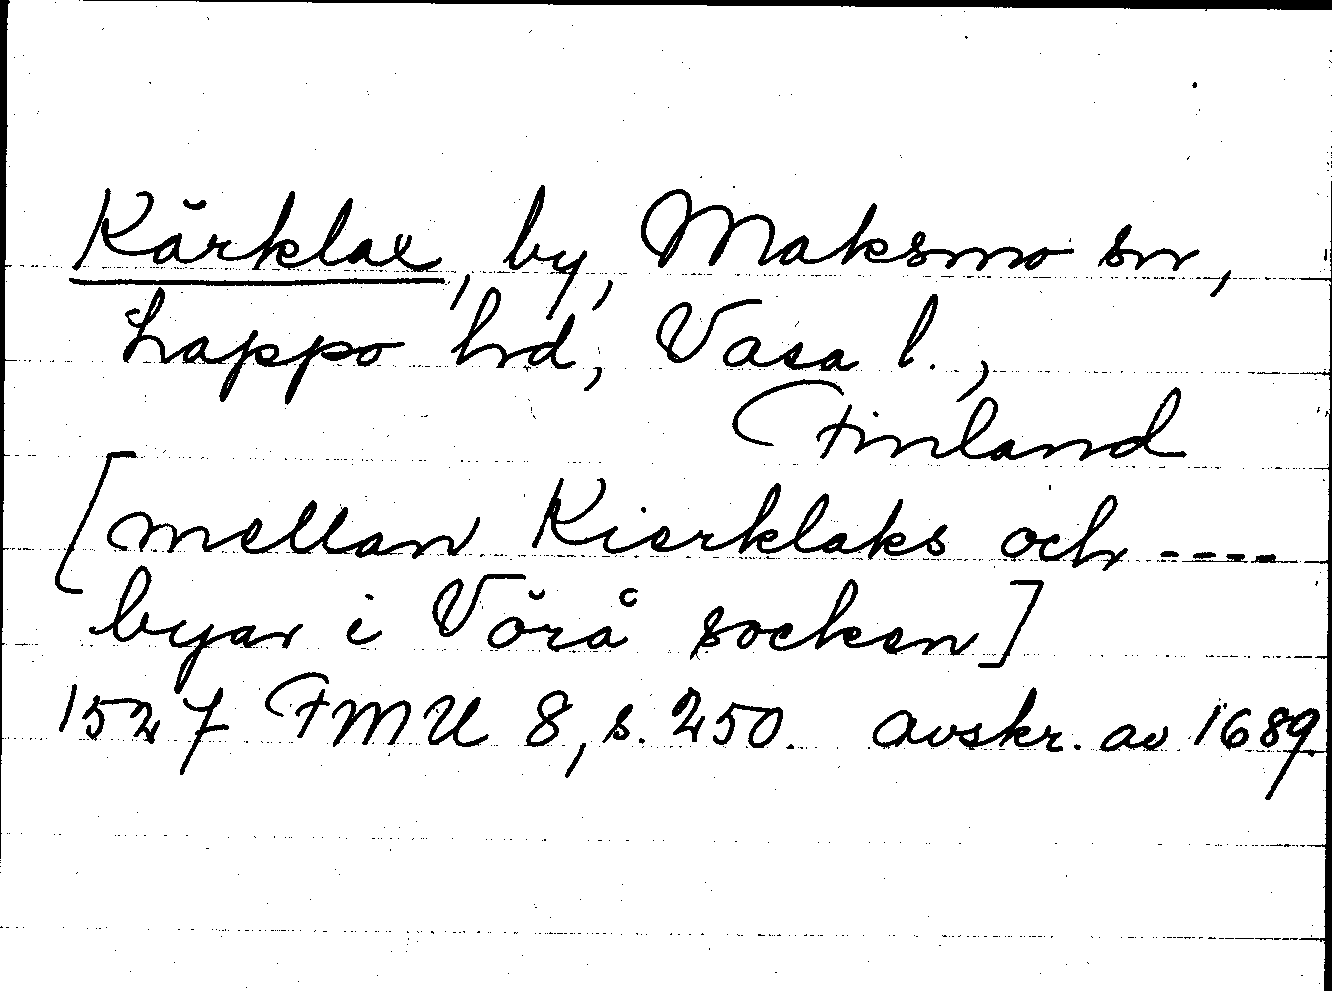 Kärklax, by, Maksmo sn,
Lappo hd, Vasa l.,
Finland
[mellan Kierklaks och ----
byar i Vörå socken]
1527 FMU 8, s. 250. Avskr. av 1689.